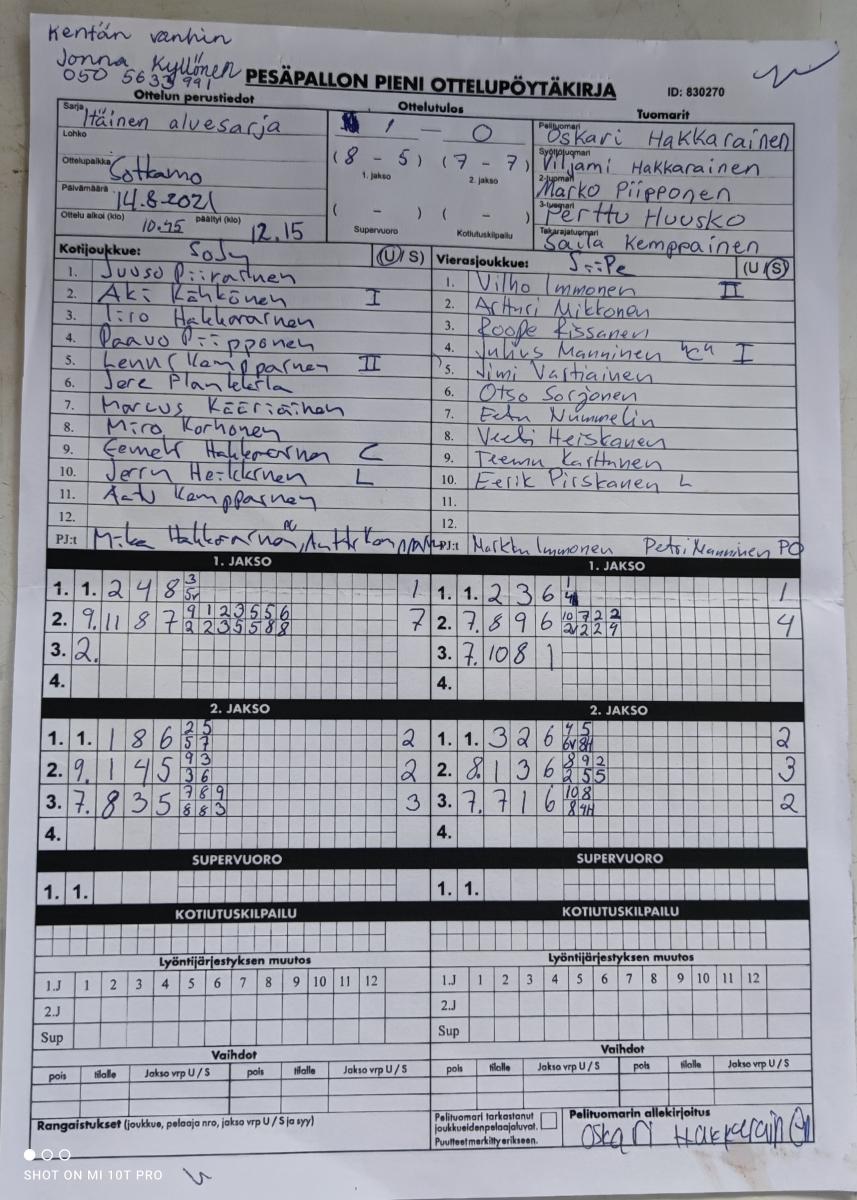 Kentän vanhin
Jonna Kyllönen
050 5633 991
PESÄPALLON PIENI OTTELUPÖYTÄKIRJA
ID: 830270
Ottelun perustiedot
Ottelutulos
Tuomarit
Sarja Itäinen aluesarja
Lohko
Ottelupaikka Sotkamo
Päivämäärä 14.8.2021
Ottelu alkoi (klo) 10.45 päättyi (klo) 12.15
1 - 0
(8 - 5) (7 - 7)
1. jakso 2. jakso
( - ) ( - )
Supervuoro Kotiutuskilpailu
Pelituomari Oskari Hakkarainen
Syöttötuomari Viljami Hakkarainen
2-tuomari Marko Piipponen
3-tuomari Perttu Huusko
Takarajatuomari Saila Kemppainen
Kotijoukkue: SoJy (U/S)
1. Juuso Piirainen
2. Aki Kähkönen I
3. Iiro Hakkarainen
4. Paavo Piipponen
5. Kemppainen II
6. Jere
7. Marcus Kääriäinen
8. Miro Korhonen
9. Eemeli Hakkarainen C
10. Jerry Heikkinen L
11. Aatu Kemppainen
12.
PJ:t Mika Hakkarainen PO,
Vierasjoukkue: SiiPe (U/S)
1. Vilho Immonen II
2. Artturi Mikkonen
3. Roope Rissanen
4. Julius Manninen "C" I
5. Jimi Vartiainen
6. Otso Sorjonen
7. Eetu Nummelin
8. Veeti Heiskanen
9. Teemu Karttunen
10. Eerik Pirskanen L
11.
12.
PJ:t Markku Immonen Petri Manninen PO
1. JAKSO
1. 1. 2 4 8 3 5v 1
2. 9. 11 8 7 9 1 2 3 5 5 6 7
2 2 3 5 5 8 8
3. 2.
4.
1. JAKSO
1. 1. 2 3 6 1 4 1
2. 7. 8 9 6 10 7 2 2 4
2v 2 2 9
3. 7. 10 8 1
4.
2. JAKSO
1. 1. 1 8 6 2 5 2
5 7
2. 9. 1 4 5 9 3 2
3 6
3. 7. 8 3 5 7 8 9 3
8 8 3
4.
2. JAKSO
1. 1. 3 2 6 4 5 2
6v 8H
2. 8. 1 3 6 8 9 2 3
2 5 5
3. 7. 7 1 6 10 8 2
8 4H
4.
SUPERVUORO
1. 1.
SUPERVUORO
1. 1.
KOTIUTUSKILPAILU
KOTIUTUSKILPAILU
Lyöntijärjestyksen muutos
1.J 1 2 3 4 5 6 7 8 9 10 11 12
2.J
Sup
Lyöntijärjestyksen muutos
1.J 1 2 3 4 5 6 7 8 9 10 11 12
2.J
Sup
Vaihdot
pois tilalle Jakso vrp U / S pois tilalle Jakso vrp U / S
Vaihdot
pois tilalle Jakso vrp U / S pois tilalle Jakso vrp U / S
Rangaistukset (joukkue, pelaaja nro, jakso vrp U / S ja syy)
Pelituomari tarkastanut
joukkueiden pelaajaluvat.
Puutteet merkitty erikseen.
Pelituomarin allekirjoitus
Oskari Hakkarainen
SHOT ON MI 10T PRO